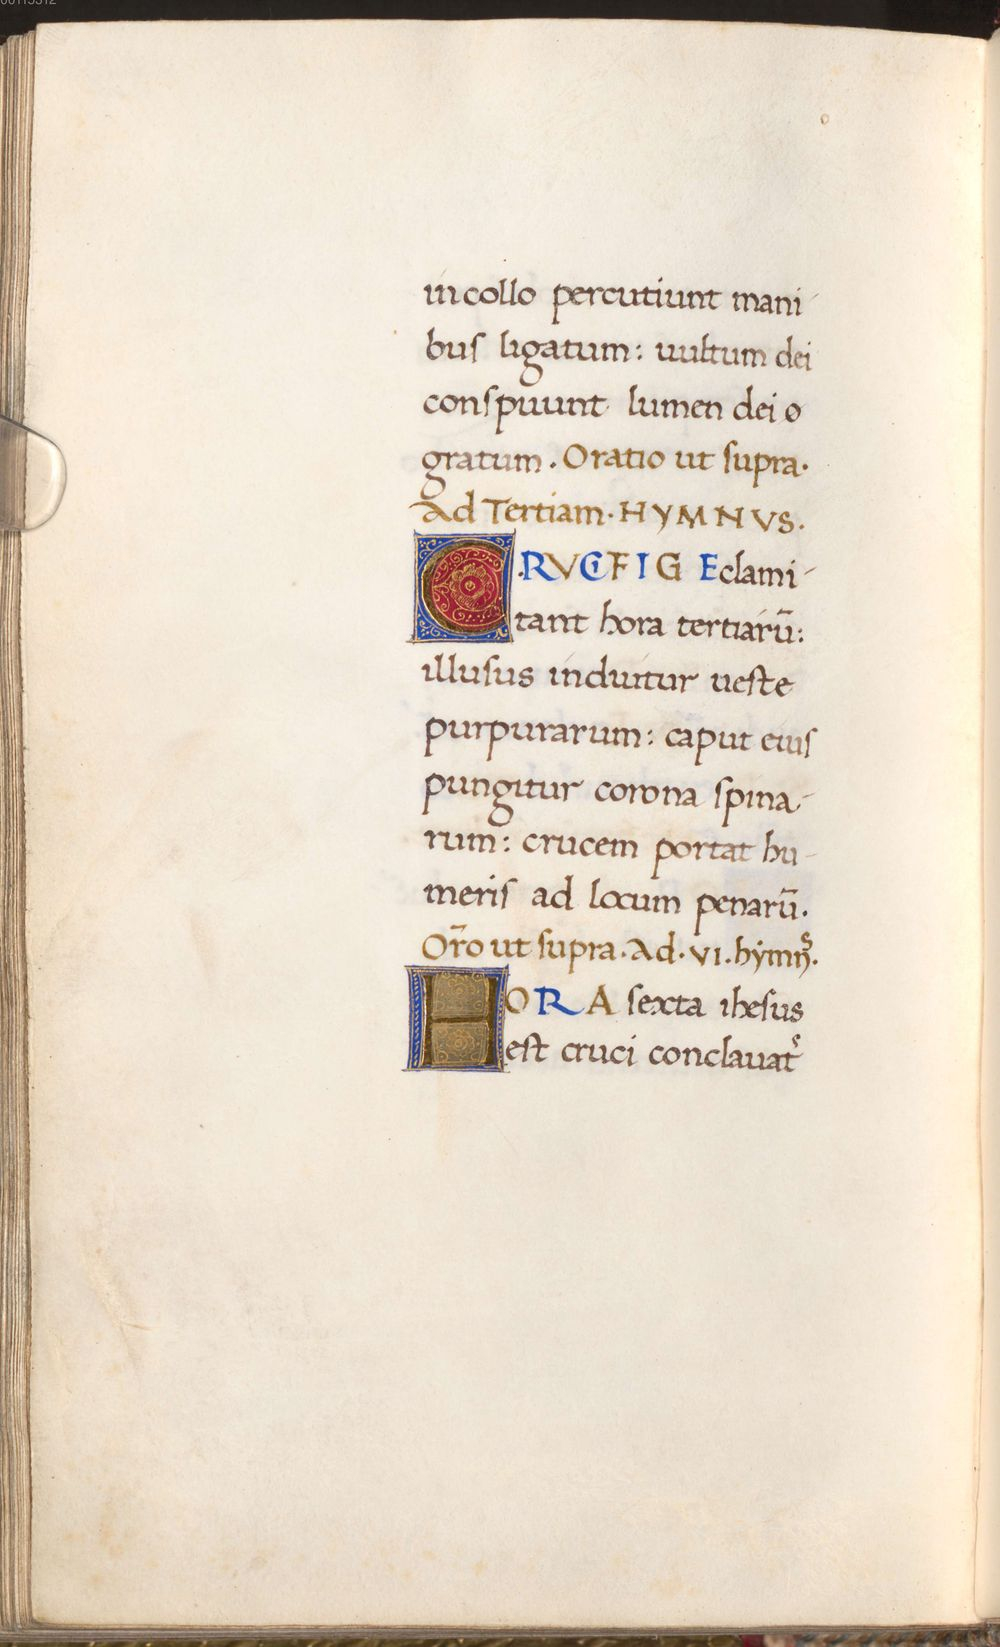 in collo percutiunt mani-
buſ ligatum: uultum dei
conſpuunt lumen dei o
gratum. Oratio ut ſupra.
Ad Tertiam. HYMNVS.
CRVCIFIGE clami-
tant hora tertiarū:
illuſus induitur ueſte
purpurarum: caput eiuſ
pungitur corona ſpina-
rum: crucem portat hu-
meriſ ad locum penarū.
Or̄o ut ſupra. Ad. VI. hymnꝰ.
HORA ſexta iheſus
eſt cruci conclauatꝰ